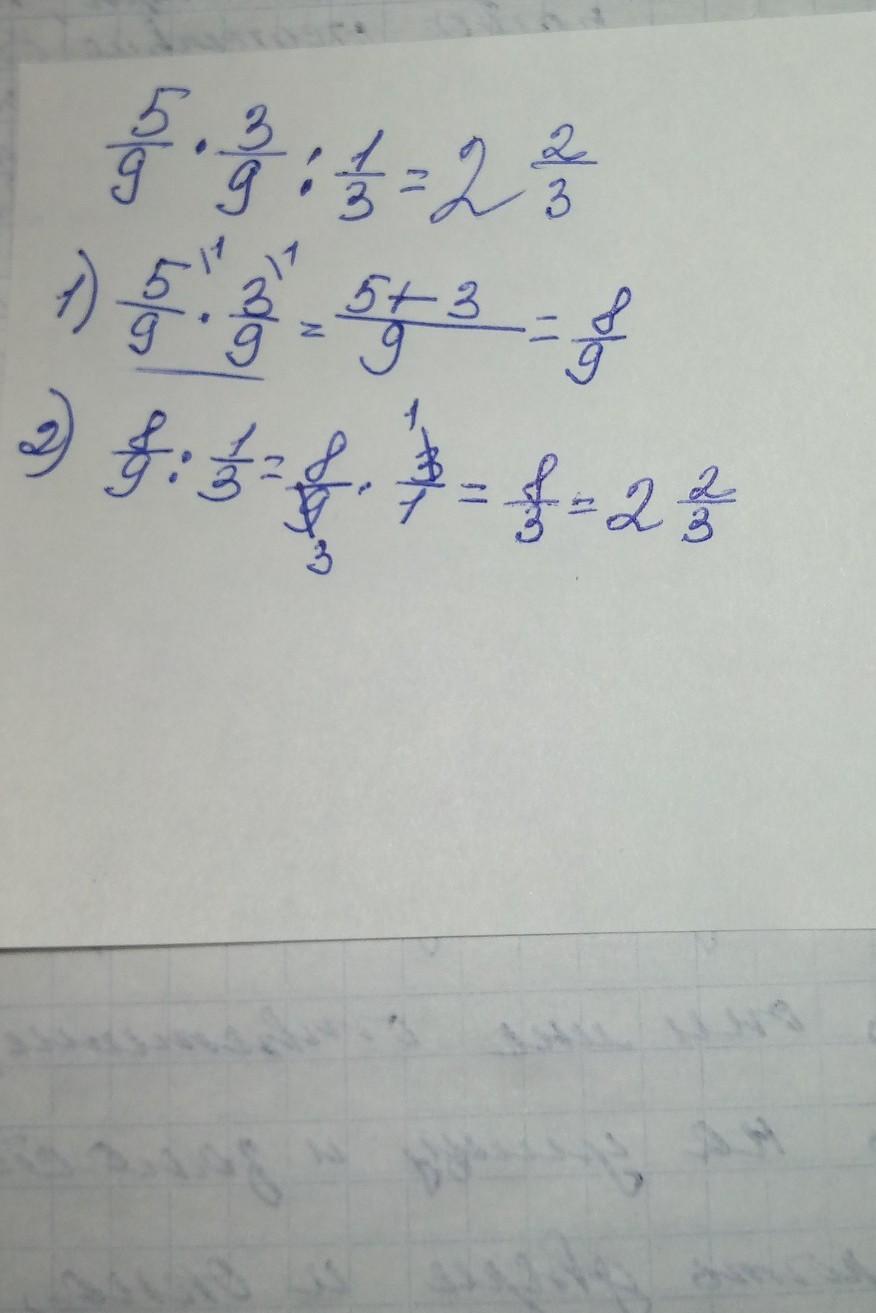 5/9 · 3/9 : 1/3 = 2 2/3
1) 5/9 \1 · 3/9 \1 = 5+3/9 = 8/9
2) 8/9 : 1/3 = 8/9 3 · 1 3/1 = 8/3 = 2 2/3